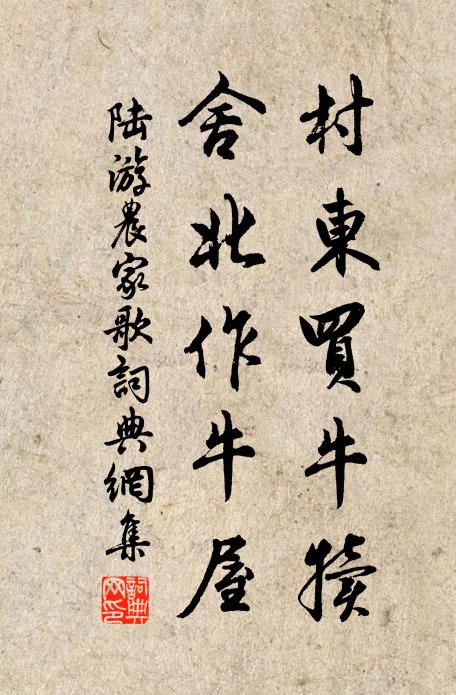 村東買牛犢
舍北作牛屋
陸游農家歌詞典網集
詞典网印